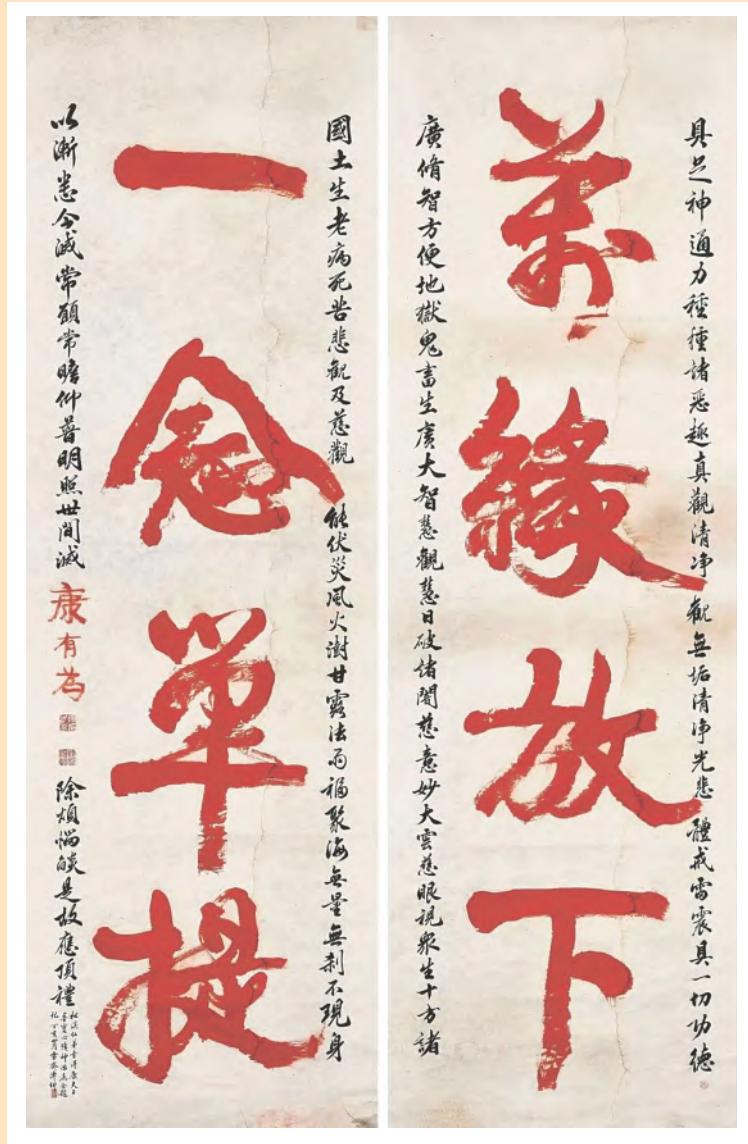 具足神通力種種諸惡趣真觀清净觀無垢清净光悲體戒雷震具一切功德
萬緣放下
廣脩智方便地獄鬼畜生廣大智慧觀慧日破诸闇慈意妙大雲慈眼視衆生十方諸
國土生老病死苦悲觀及慈觀能伏災風火澍甘露法雨福聚海無量無刹不現身
一念單提
以漸悉令滅常願常瞻仰普明照世間滅
康有為
除煩惱燄是故應頂禮